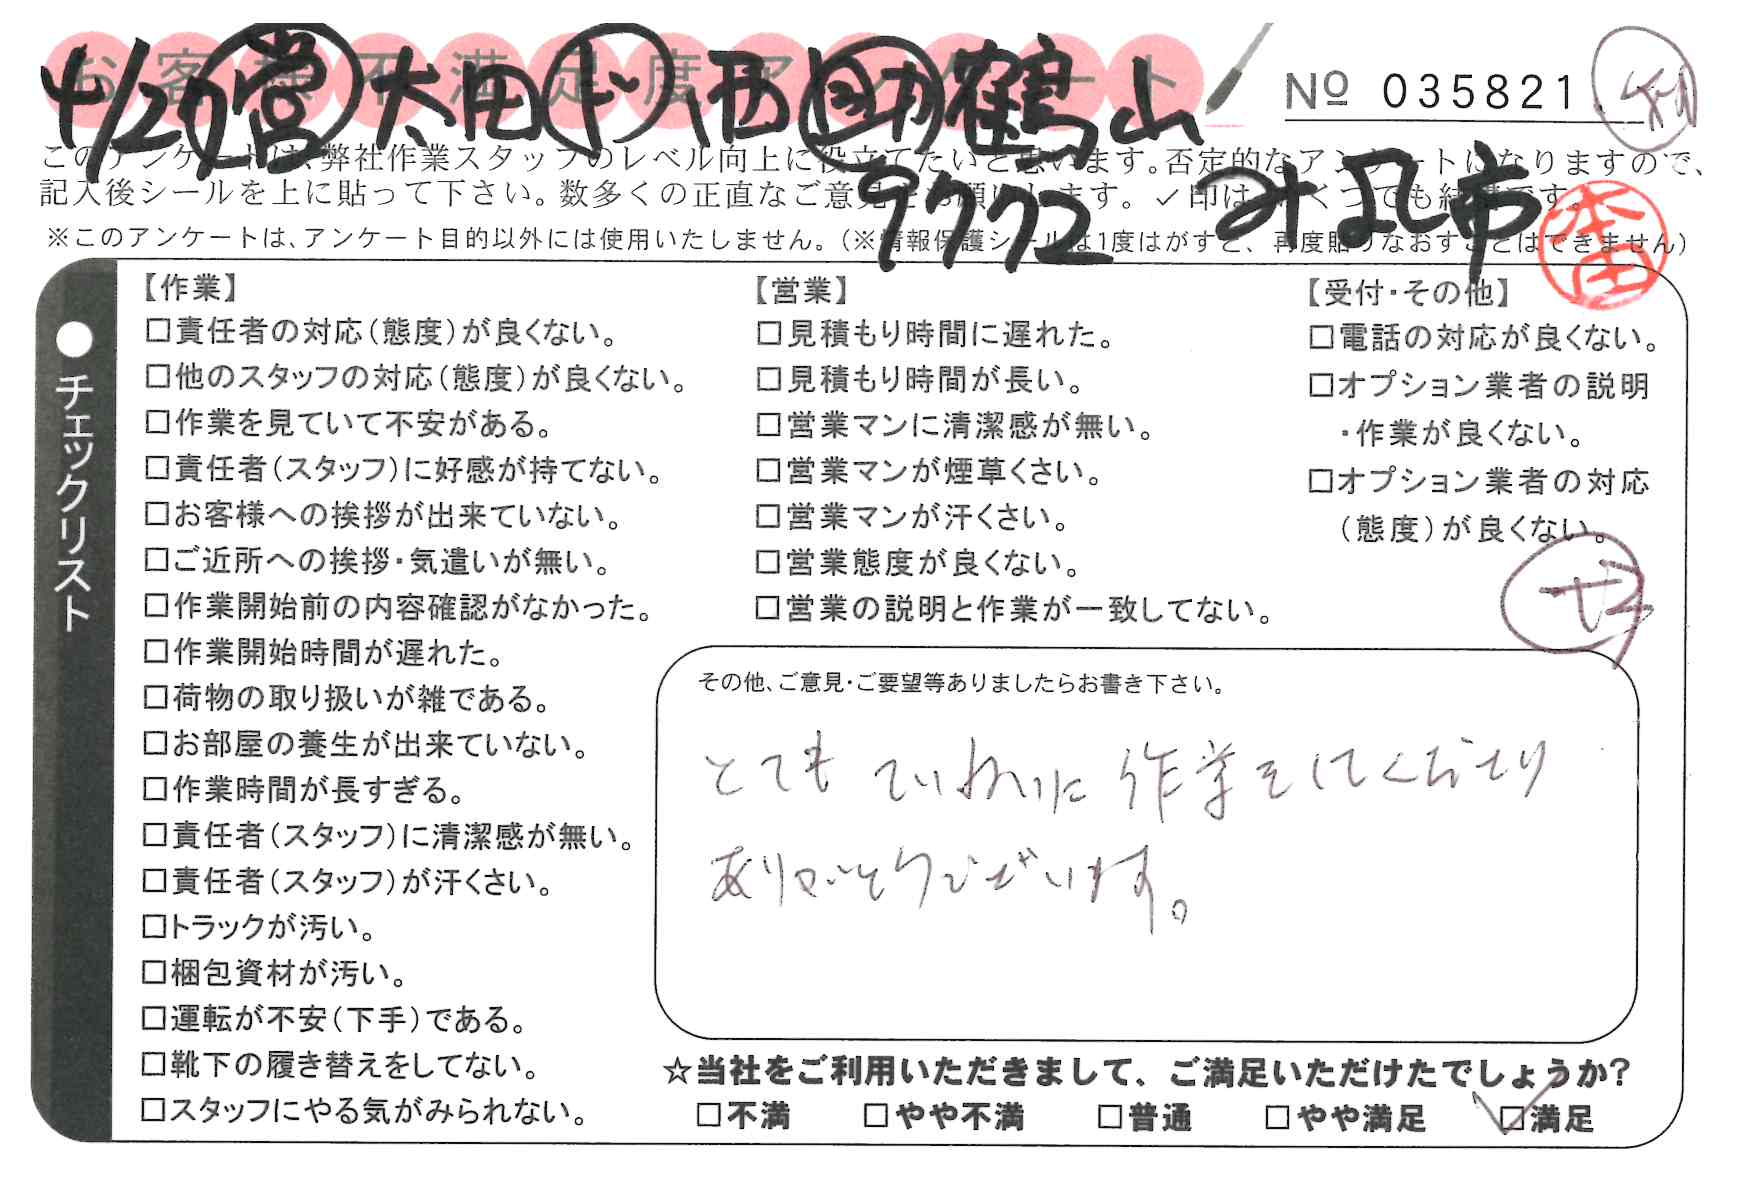 お客様不満足度アンケート
№ 035821
4/27 営 太田 ド 西 助 鶴山
9772 みよし市
このアンケートは、弊社作業スタッフのレベル向上に役立てたいと思います。否定的なアンケートになりますので、
記入後シールを上に貼って下さい。数多くの正直なご意見をお願いします。✓印はいくつでも結構です。
※このアンケートは、アンケート目的以外には使用いたしません。(※情報保護シールは1度はがすと、再度貼りなおすことはできません)
本田
●チェックリスト
【作業】
□責任者の対応(態度)が良くない。
□他のスタッフの対応(態度)が良くない。
□作業を見ていて不安がある。
□責任者(スタッフ)に好感が持てない。
□お客様への挨拶が出来ていない。
□ご近所への挨拶・気遣いが無い。
□作業開始前の内容確認がなかった。
□作業開始時間が遅れた。
□荷物の取り扱いが雑である。
□お部屋の養生が出来ていない。
□作業時間が長すぎる。
□責任者(スタッフ)に清潔感が無い。
□責任者(スタッフ)が汗くさい。
□トラックが汚い。
□梱包資材が汚い。
□運転が不安(下手)である。
□靴下の履き替えをしてない。
□スタッフにやる気がみられない。
【営業】
□見積もり時間に遅れた。
□見積もり時間が長い。
□営業マンに清潔感が無い。
□営業マンが煙草くさい。
□営業マンが汗くさい。
□営業態度が良くない。
□営業の説明と作業が一致してない。
【受付・その他】
□電話の対応が良くない。
□オプション業者の説明
・作業が良くない。
□オプション業者の対応
(態度)が良くない。
その他、ご意見・ご要望等ありましたらお書き下さい。
とても ていねいに 作業をしてくださり
ありがとうございます。
☆当社をご利用いただきまして、ご満足いただけたでしょうか?
□不満 □やや不満 □普通 □やや満足 ☑満足